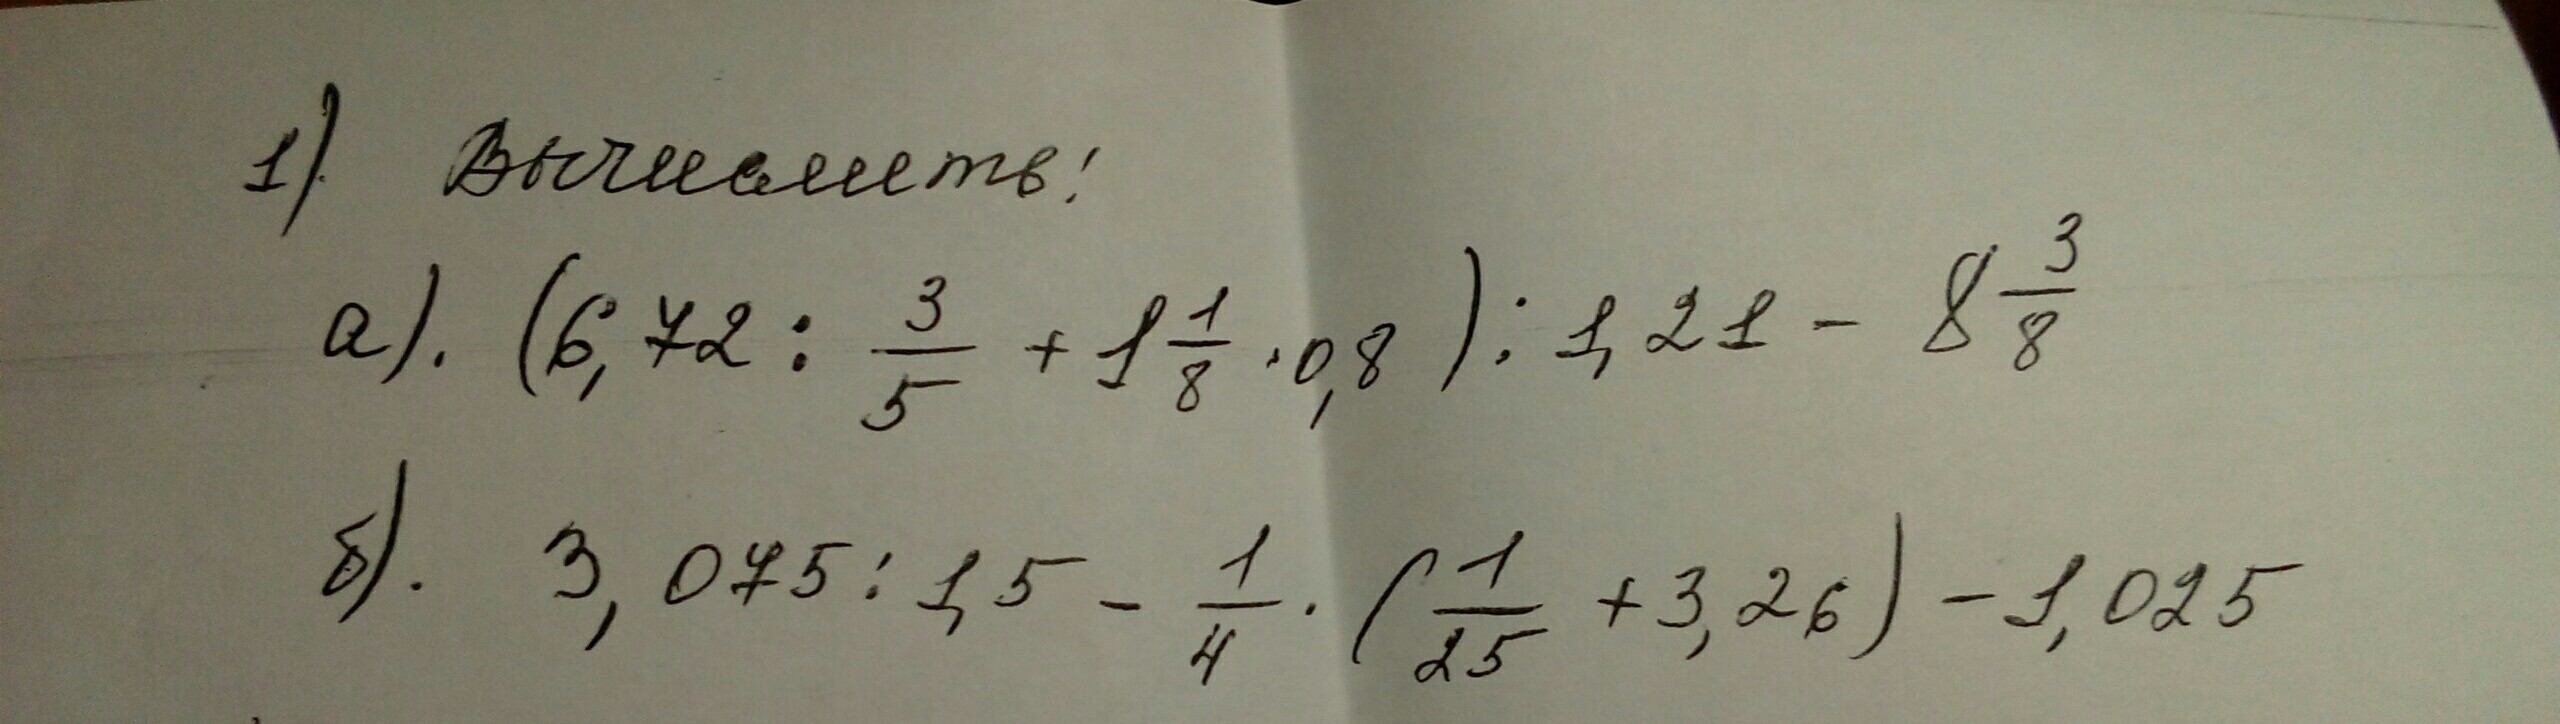 1). Вычислить:
а). (6,72 : 3/5 + 1 1/8 · 0,8) : 1,21 - 8 3/8
б). 3,075 : 1,5 - 1/4 · (1/25 + 3,26) - 1,025